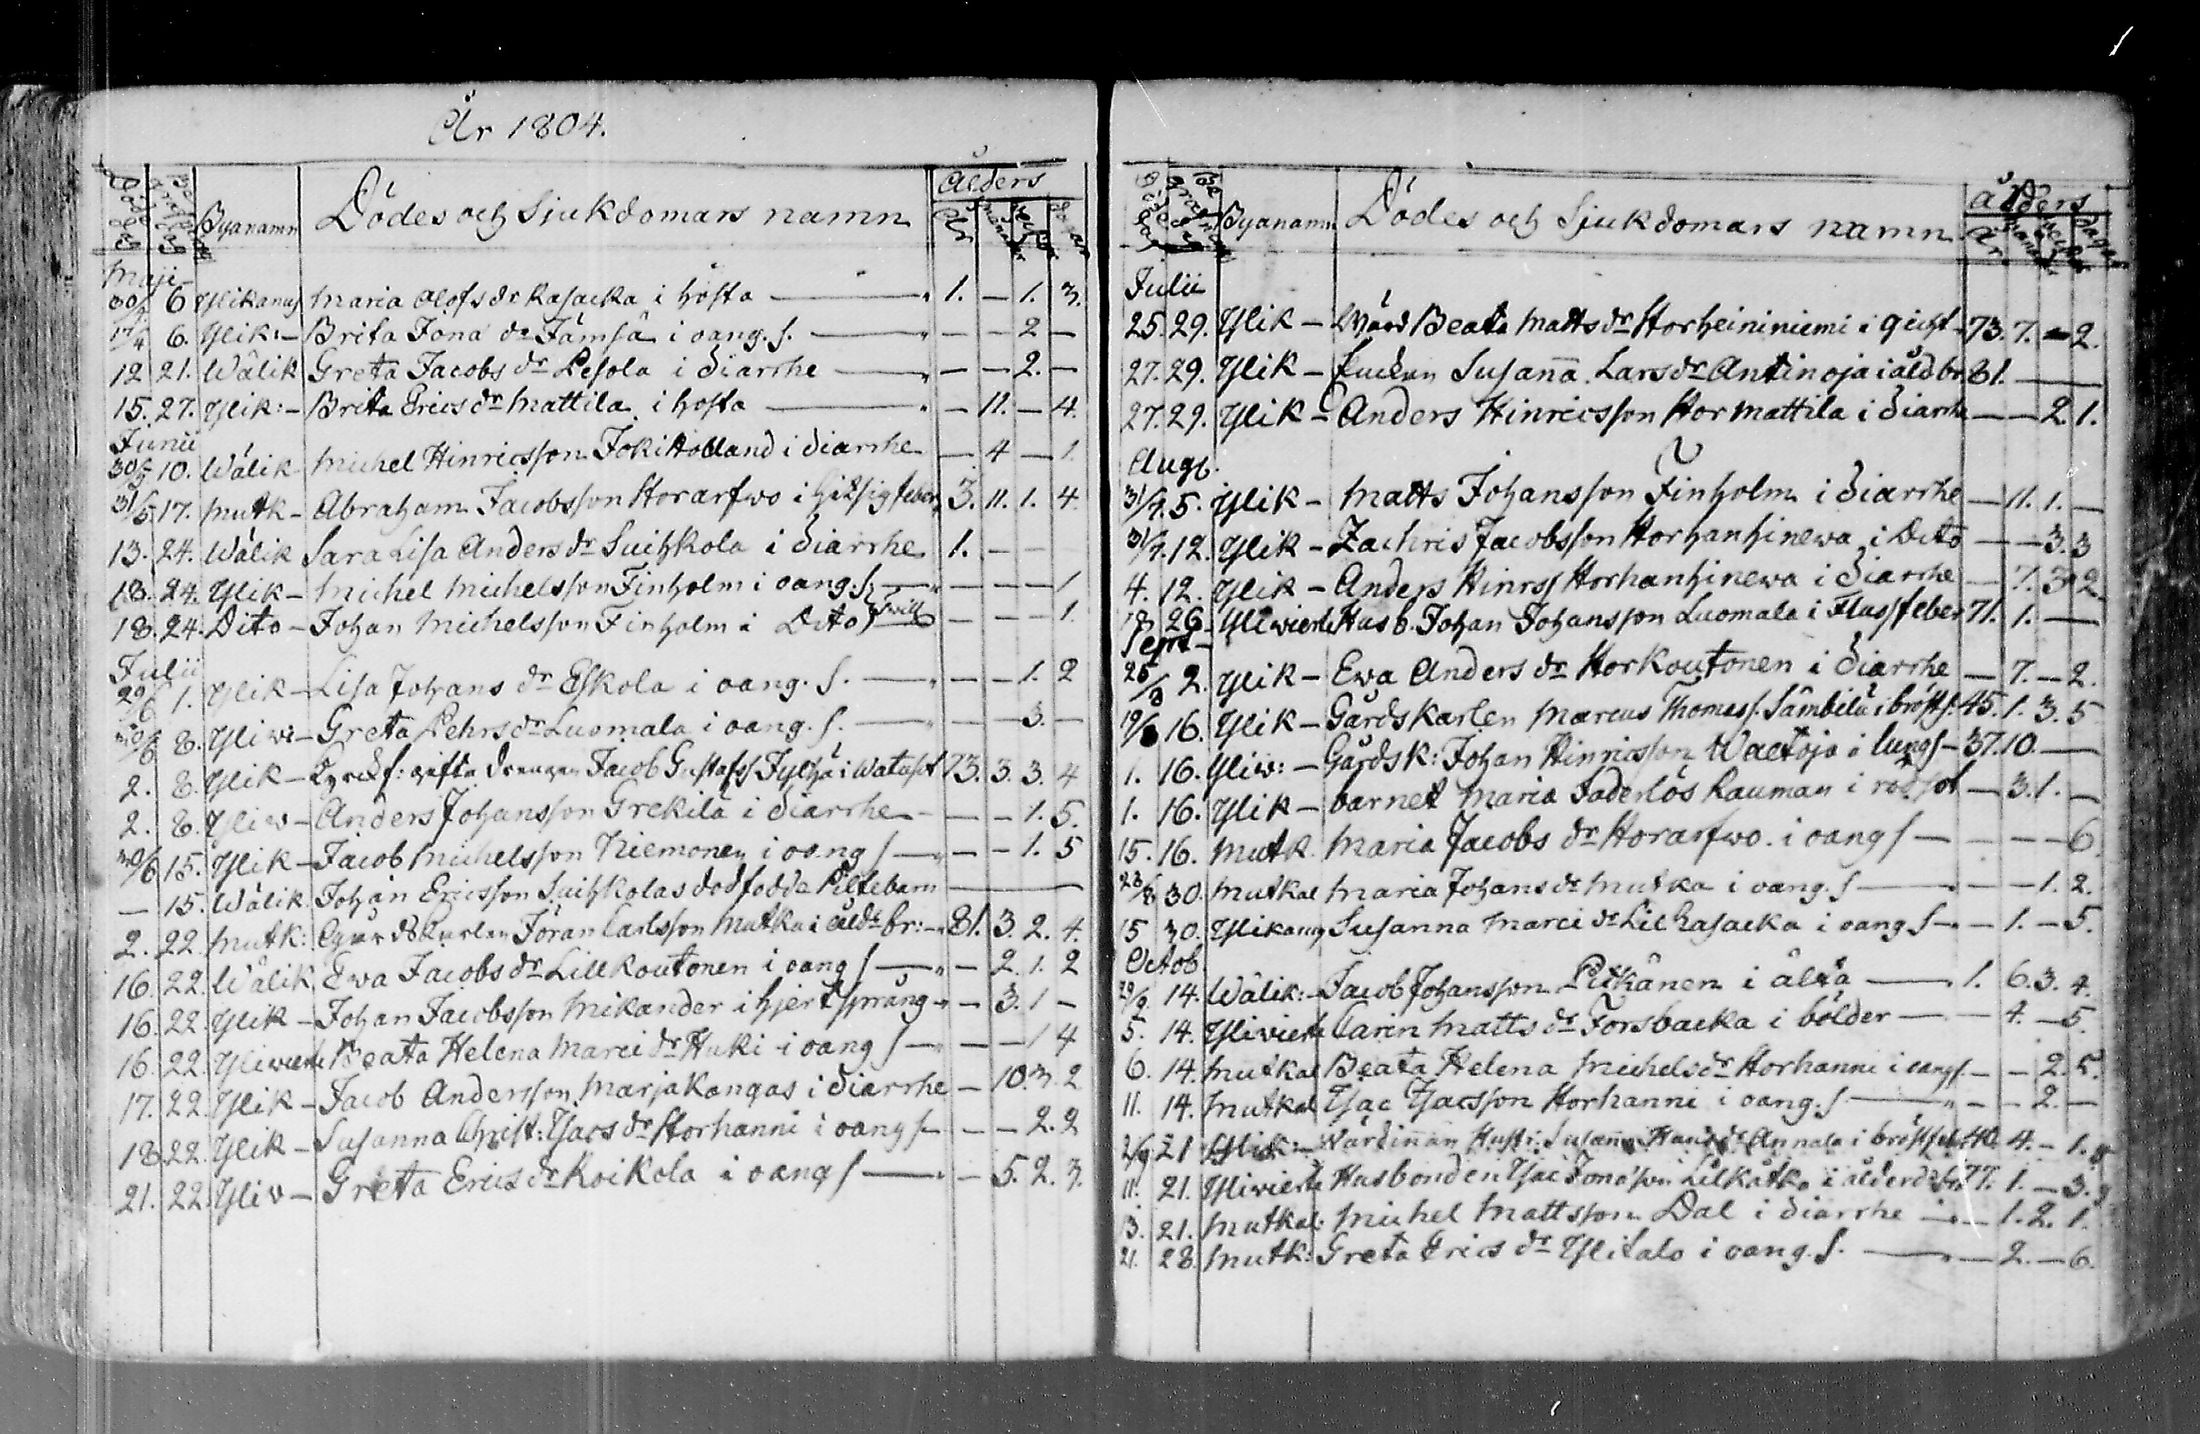 År 1804.
Döde dag Begrafnings dag Byanamn Dödes och Sjukdomars namn Ålders År månader veckor dagar
Maji
30/4 6 Ylikanus Maria Olofs dr Rasacka i hosta — 1. — 1. 3.
17/4 6. Ylik: — Brita Jona dr Jämsä i oang. s. — — — 2 —
12 21. Wälik Greta Jacobs dr Pesola i diarrhe — — — 2. —
15. 27. Ylik: — Brita Erics dr Mattila i hosta — — 11. — 4.
Junii
30/5 10. Wälik Michel Hinricsson JokiHolland i diarrhe — 4 — 1
31/5 17. Mutk — Abraham Jacobsson Storarfwo i hitsig feber 3. 11. 1. 4.
13. 24. Wälik Sara Lisa Anders dr Suihkola i diarrhe 1. — — —
18. 24. Ylik — Michel Michelsson Finholm i oang. s. — — — — 1
18. 24. Dito — Johan Michelsson Finholm i Dito } Twill — — — 1.
Julii
29/6 1. Ylik — Lisa Johans dr Eskola i oang. s. — — — 1. 2
30/6 8. Yliwi — Greta Pehrs dr Luomala i oang. s. — — — 3. —
2. 8. Ylik — gifta Drengen Jacob Gustafss Jylhä i Watusot 73. 3. 3. 4
2. 8. Yliw — Anders Johansson Grekilä i diarrhe — — — 1. 5.
30/6 15. Ylik — Jacob Michelsson Niemonen i oang s — — — 1. 5
— 15. Wälik Johan Ericsson Suihkolas dodfodda Piltebarn —
2. 22. Mutk: Gårdskarlen Jöran Carlsson Mutka i åldr br: — 81. 3. 2. 4.
16. 22. Wälik Ewa Jacobs dr Lillkoutonen i oang s — — 2. 1. 2
16. 22. Ylik — Johan Jacobsson Mikander i hjertsprång — — 3. 1 —
16. 22. Yliwieska Beata Helena Marci dr Huki i oang s — — — 1 4
17. 22. Ylik — Jacob Andersson Marjakangas i diarrhe — 10. 3. 2
18. 22. Ylik — Susanna Christ: Isacs dr Storhanni i oang s — — — 2. 2
21. 22. Yliv — Greta Erics dr Koikola i oang s — — 5. 2. 3.
Döde dag Begrafnings dag Byanamn Dödes och Sjukdomars namn Ålders År månader veckor dagar
Julii
25. 29. Ylik — Wärd Beata Matts dr Storheininiemi i gicht — 73. 7. — 2.
27. 29. Ylik — Susanna Lars dr Antinoja i åld br 81. — —
27. 29. Ylik — Anders Hinricsson Stormattila i diarrhe — — 2. 1.
Aug.
31/7. 5. Ylik — Matts Johansson Finholm i diarrhe — 11. 1. —
31/7. 12. Ylik — Zachris Jacobsson Storhanhinewa i Dito — — 3. 3
4. 12. Ylik — Anders Hinrss Storhanhinewa i diarrhe — 7. 3. 2.
18 26 Yliwieska Husb. Johan Johansson Luomala i Flussfeber 71. 1. —
Sept —
25/8 2. Ylik — Ewa Anders dr Storkoutonen i diarrhe — 7. — 2.
19/8 16. Ylik — Gårdskarlen Marcus Thomass. Sämbilä i bröstf. 45. 1. 3. 5
1. 16. Yliw: — Gårdsk: Johan Hinricsson Waetoja i lungs — 37. 10. —
1. 16. Ylik — barnet Maria Faderlös Rauman i rödsot — 3. 1. —
15. 16. Mutk Maria Jacobs dr Storarfwo. i oang s — — — — 6.
23/8 30. Mutkal Maria Johans dr Mutka i oang. s — — — 1. 2.
15 30. Ylikanus Susanna Marci dr Lilrasacka i oang s — — 1. — 5.
Octob.
29/9 14. Wälik: — Jacob Johansson Pitkänen i älta — 1. 6. 3. 4.
5. 14. Yliwieska Carin Matts dr Forsbacka i bölder — — 4. — 5.
6. 14. Mutkal Beata Helena Michels dr Storhanni i oangs — — 2. 5.
11. 14. Mutkal Isac Isacsson Storhanni i oang. s — — — 2. —
2/9 21 Ylik: — Wärdinnan Hustr: Susanna Hans dr Annala i bröstfeb 40. 4. — 1.
11. 21. Yliwieska Husbonden Isac Jonasson Lilkätkö i ålderds br 77. 1. — 3.
13. 21. Mutkal: Michel Mattsson Dal i diarrhe — — 1. 2. 1.
21. 28. Mutk: Greta Erics dr Ylitalo i oang. s. — — 2. — 6.